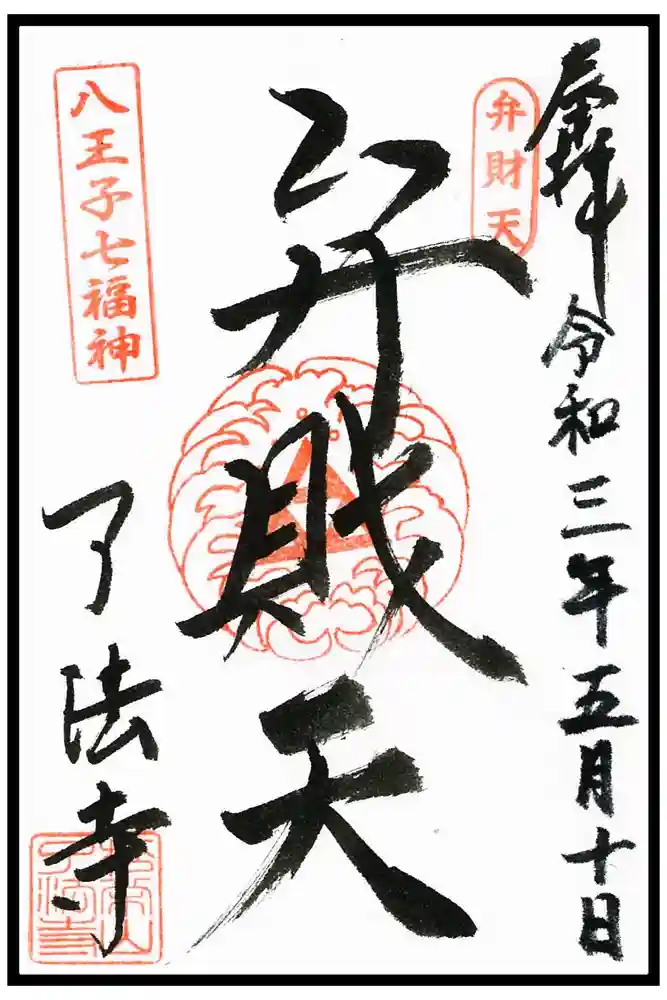 奉拝
令和三年五月十日
弁財天
弁財天
八王子七福神
了法寺